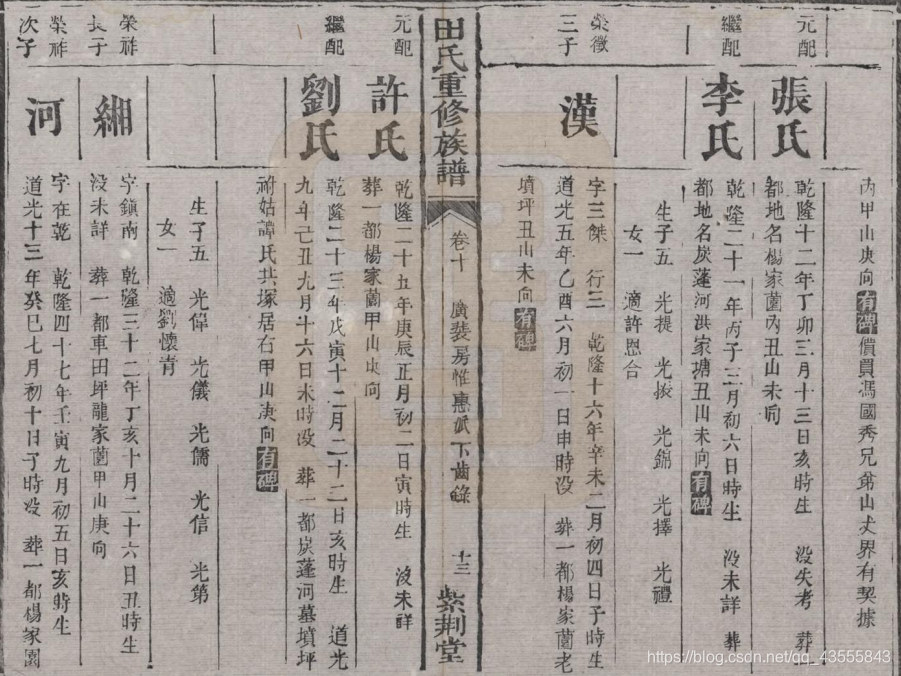 丙甲山庚向有碑價買馮國秀兄弟山丈界有契據
元配
張氏
乾隆十二年丁卯三月十三日亥時生 没失考 葬一
都地名楊家園內丑山未向
繼配
李氏
乾隆二十一年丙子三月初六日時生 没未詳 葬
都地名炭蓬河洪家塘丑山未向有碑
生子五 光提 光 光錦 光擇 光禮
女一 適許恩合
榮徵
三子
漢
字三傑 行三 乾隆十六年辛未二月初四日子時生
道光五年乙酉六月初一日申時没 葬一都楊家園老
墳坪丑山未向有碑
田氏重修族譜
卷十 廣裝房惟惠派下齒錄 十三 紫荆堂
元配
許氏
乾隆二十五年庚辰正月初二日寅時生 没未詳
葬一都楊家園甲山庚向
繼配
劉氏
乾隆二十三年戊寅十二月二十二日亥時生 道光
九年己丑九月十六日未時没 葬一都炭蓬河墓墳坪
祔姑譚氏共塚居右甲山庚向有碑
生子五 光偉 光儀 光儒 光信 光第
女一 適劉懷青
榮祚
長子
緗
字鎮南 乾隆三十二年丁亥十月二十六日丑時生
没未詳 葬一都車田坪龍家園甲山庚向
榮祚
次子
河
字在乾 乾隆四十七年壬寅九月初五日亥時生
道光十三年癸巳七月初十日子時没 葬一都楊家園
https://blog.csdn.net/qq_43555843